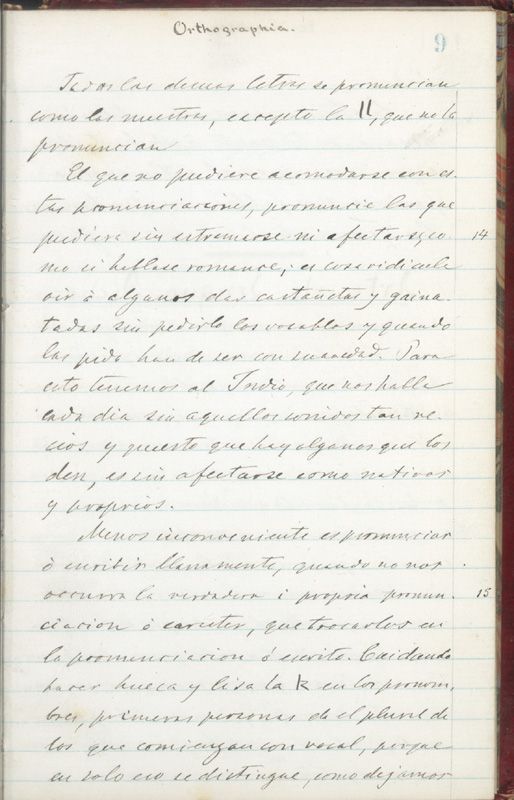 Orthographia.
9
Todas las demas letras se pronuncian
como las nuestras, excepto la ll, que no la
pronuncian
El que no pudiere acomodarse con es-
tas pronunciaciones, pronuncie las que
pudiera sin estremarse ni afectarse, co- 14
mo si hablase romance, es cosa ridicula
oir à algunos dar castañetas y gazna-
tadas sin pedirlo los vocablos y quando
las pida han de ser con suavedad. Para
esto tenemos al Indio, que nos habla
cada dia sin aquellos sonidos tan re-
cios y puesto que hay algunos que los
den, es sin afectarse como nativos
y proprios.
Menos inconveniente es pronunciar
ò escribir llanamente, quando no nos
ocurra la verdadera i propria pronun- 15
ciacion ò caracter, que trocarlos en
la pronunciacion ó escrito. Cuidando
hacer hueca y lisa la k en los pronom-
bres, primeras personas de el plural de
los que comienzan con vocal, porque
en solo eso se distingue, como dejamos